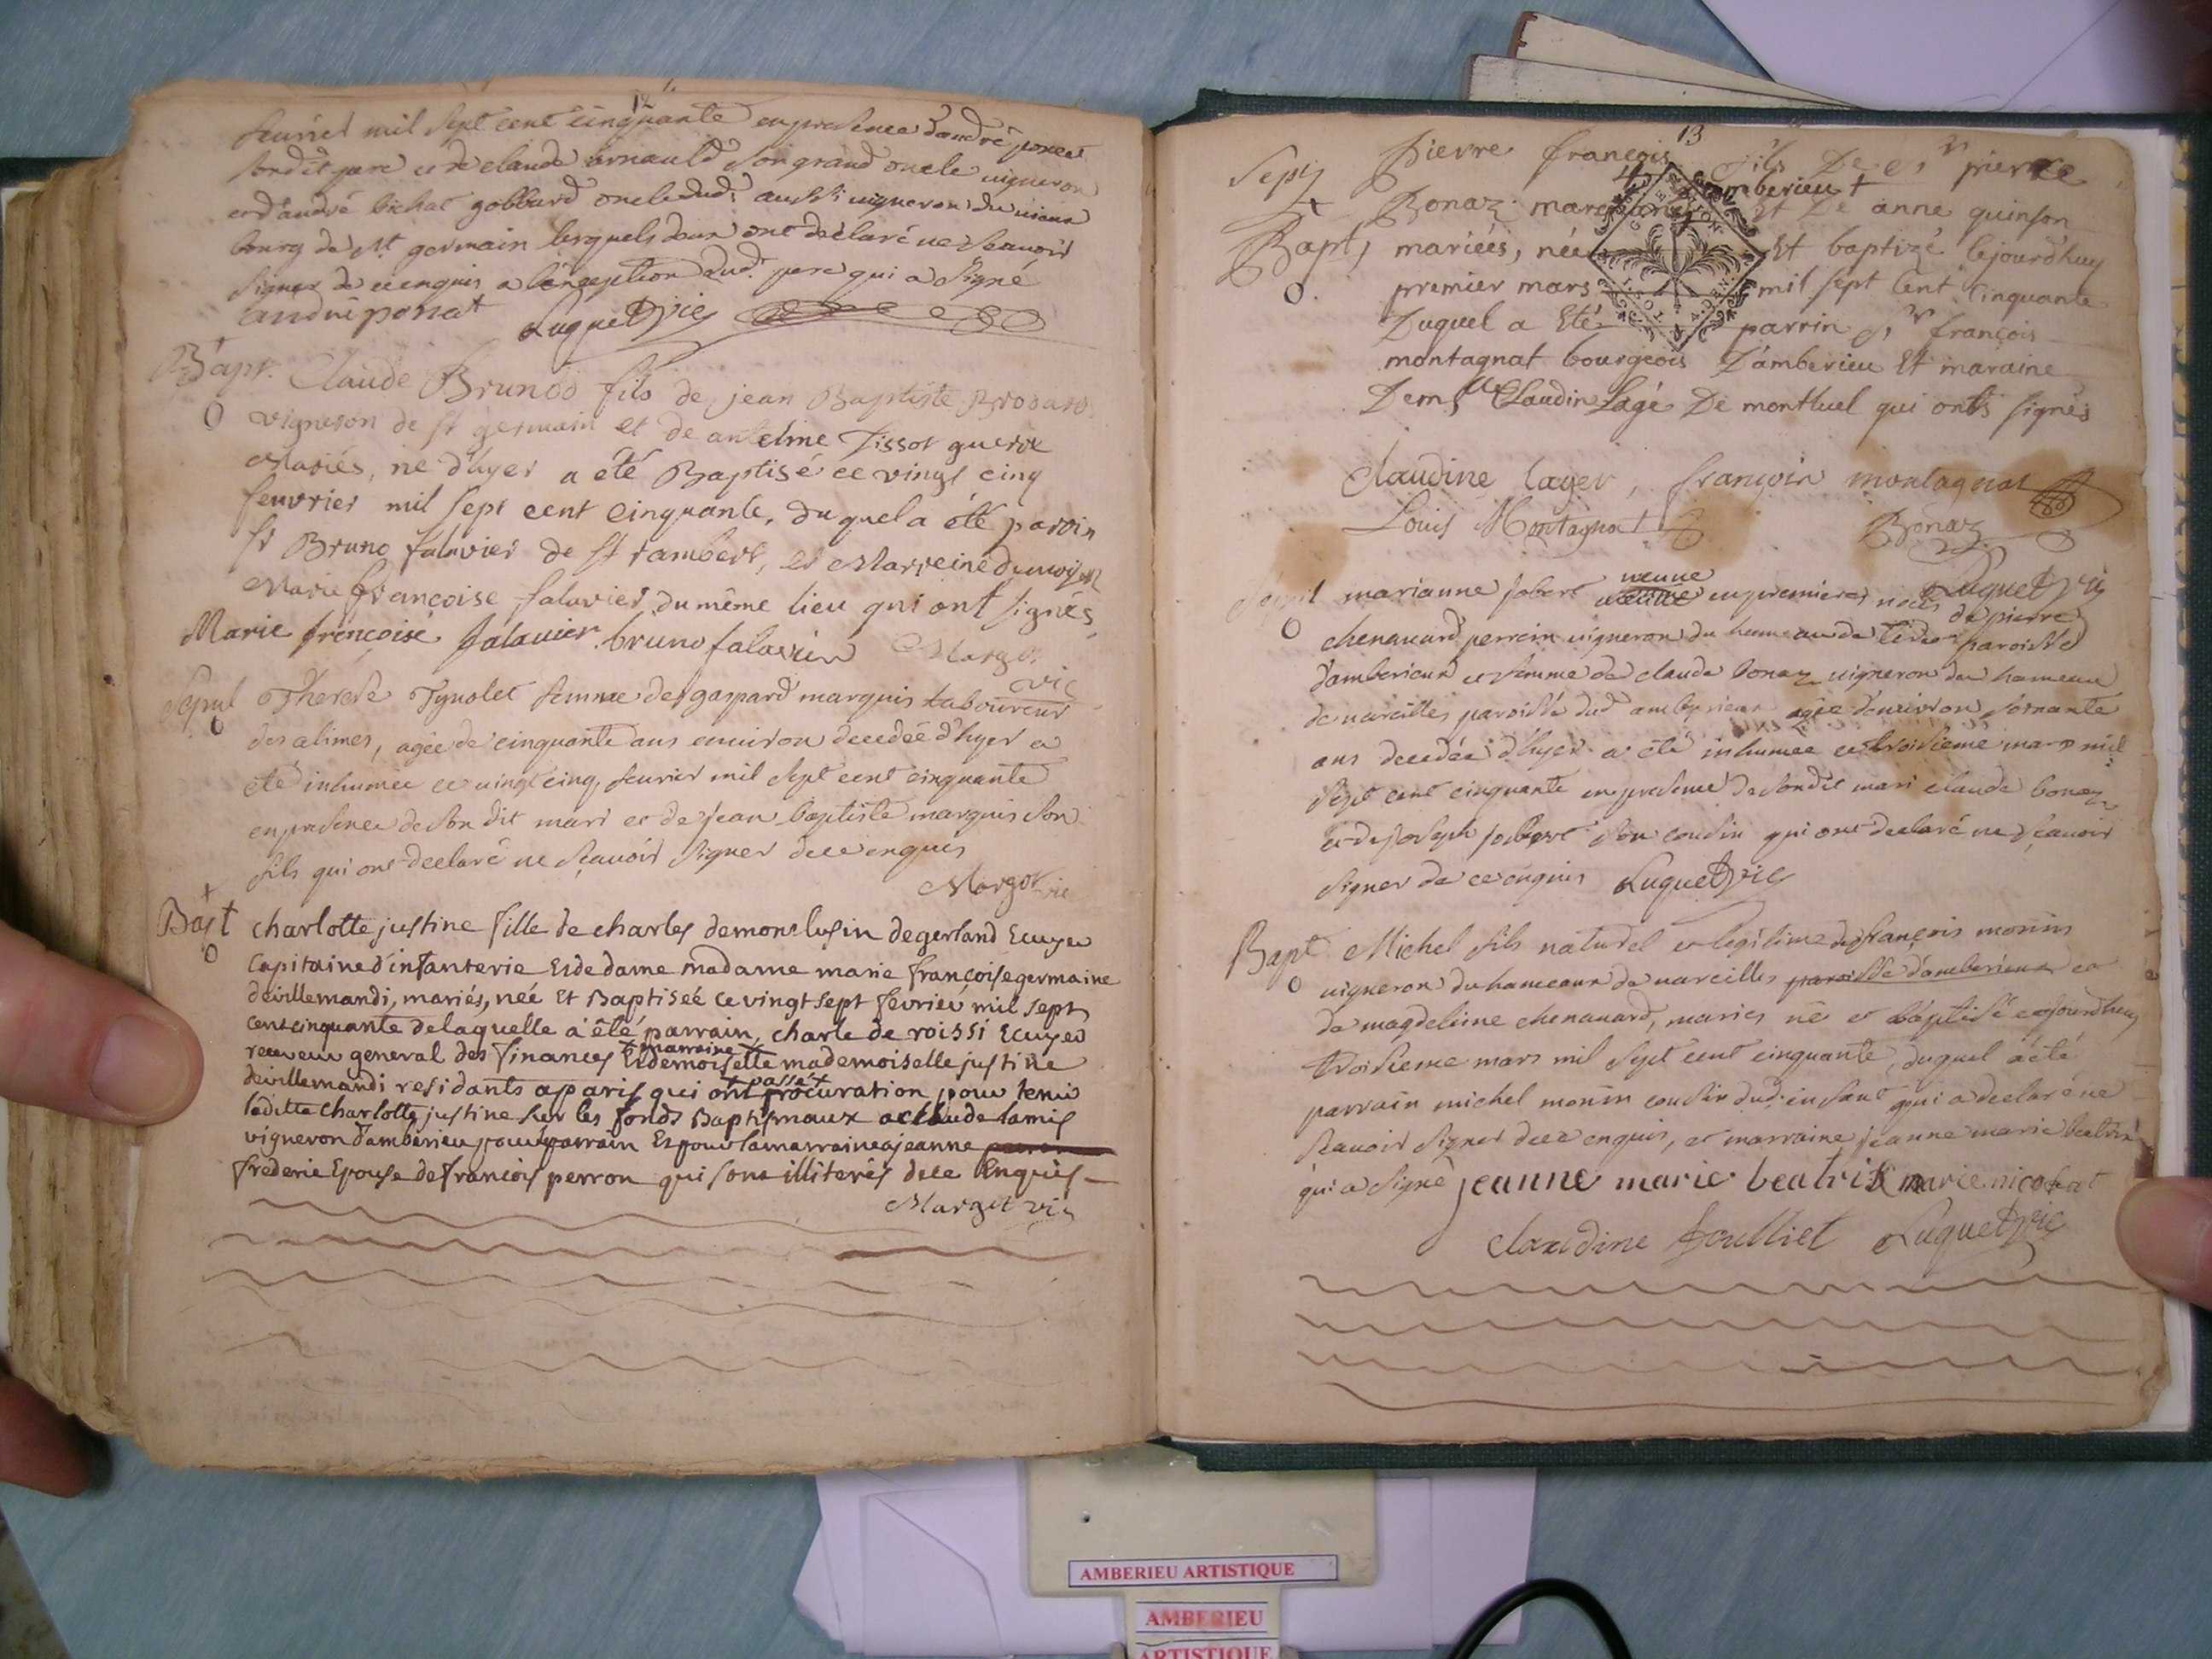 12
feuvrier mil sept cent cinquante en presence d'andré ponat
sondit pere et de claude arnauld son grand oncle vigneron
et d'andré bichat gobbard oncle dud. aussi vigneron du vieux
bourg de st. germain lesquels deux ont declaré ne scavoir
signer de ce enquis a l'exception dud. pere qui a signé
andré ponat Luquet vic
Bapt. Claude Bruno fils de jean Baptiste
vigneron de st germain et de antelme Tissot guerre
Mariés, né d'hyer a été Baptisé ce vingt cinq
feuvrier mil sept cent cinquante, du quel a été paroin
sr Bruno falavier de st rambert, et Marreine demoiselle
Marie françoise falavier du même lieu qui ont signés
Marie frencoise falavier bruno falavier Margot
vic
Sepul Therese Tynolet femme de gaspard marquis laboureur
des alimes, agée de cinquante ans environ decedée d'hyer a
été inhumée ce vingt cinq feuvrier mil sept cent cinquante
en presence de son dit mari et de jean baptiste marquis son
fils qui ont declaré ne scavoir signer de ce enquis
Margot vic
Bapt charlotte justine fille de charles demonlusin degerland Ecuyer
Capitaine d'infanterie Et de dame madame marie françoise germaine
devillemandi, mariés, née Et Baptiseé ce vingt sept fevrier mil sept
cent cinquante delaquelle a été parrain, charle de roissi Ecuyer
receveur general des finances Et + marraine + demoiselle mademoiselle justine
devillemandi residants a paris qui ont + passé + procuration pour tenir
laditte charlotte justine sur les fonds Baptismaux a claude lamis
vigneron d'amberieu pour parrain Et pour la marraine a jeanne
frederic Epouse de françois perron qui sont illiterés de ce Enquis
Margot vic
13
Pierre françois fils De sr pierre
+ d'amberieu +
Bonaz marchand Et De anne quinson
Bapt, mariées, née Et baptizé cejourd'huy
premier mars mil sept Cent Cinquante
Duquel a Eté parrin sr françois
montagnat bourgeois D'amberieu Et maraine
Demslle Claudine Lagé De montluel qui onts signés
Claudine layer, françois montagnat
Louis Montagnat Bonaz
Luquet vic
Sepul marianne jobert veuve en premieres noces de pierre
chenavard perrein vigneron du hameau de tiret paroisse
d'amberieux et femme de claude bonaz vigneron du hameau
de vareilles paroisse dud amberieux agée d'environ soixante
ans decedée d'hyer a été inhumée ce troisieme mars mil
sept cent cinquante en presence de sondit mari claude bonaz
et de joseph jobert son cousin qui ont declaré ne scavoir
signer de ce enquis Luquet vic
Bapt Michel fils naturel et legitime de françois monin
vigneron du hameaux de vareilles paroisse d'amberieux et
de magdeleine chenavard, mariés né et baptisé cejourdhuy
troisieme mars mil sept cent cinquante, duquel a été
parrain michel monin cousin dud. enfant qui a declaré ne
scavoir signer de ce enquis, et marraine jeanne marie beatrix
qui a signé jeanne marie beatrix marie nicolat
claudine Luquet vic
AMBERIEU ARTISTIQUE
AMBERIEU
ARTISTIQUE